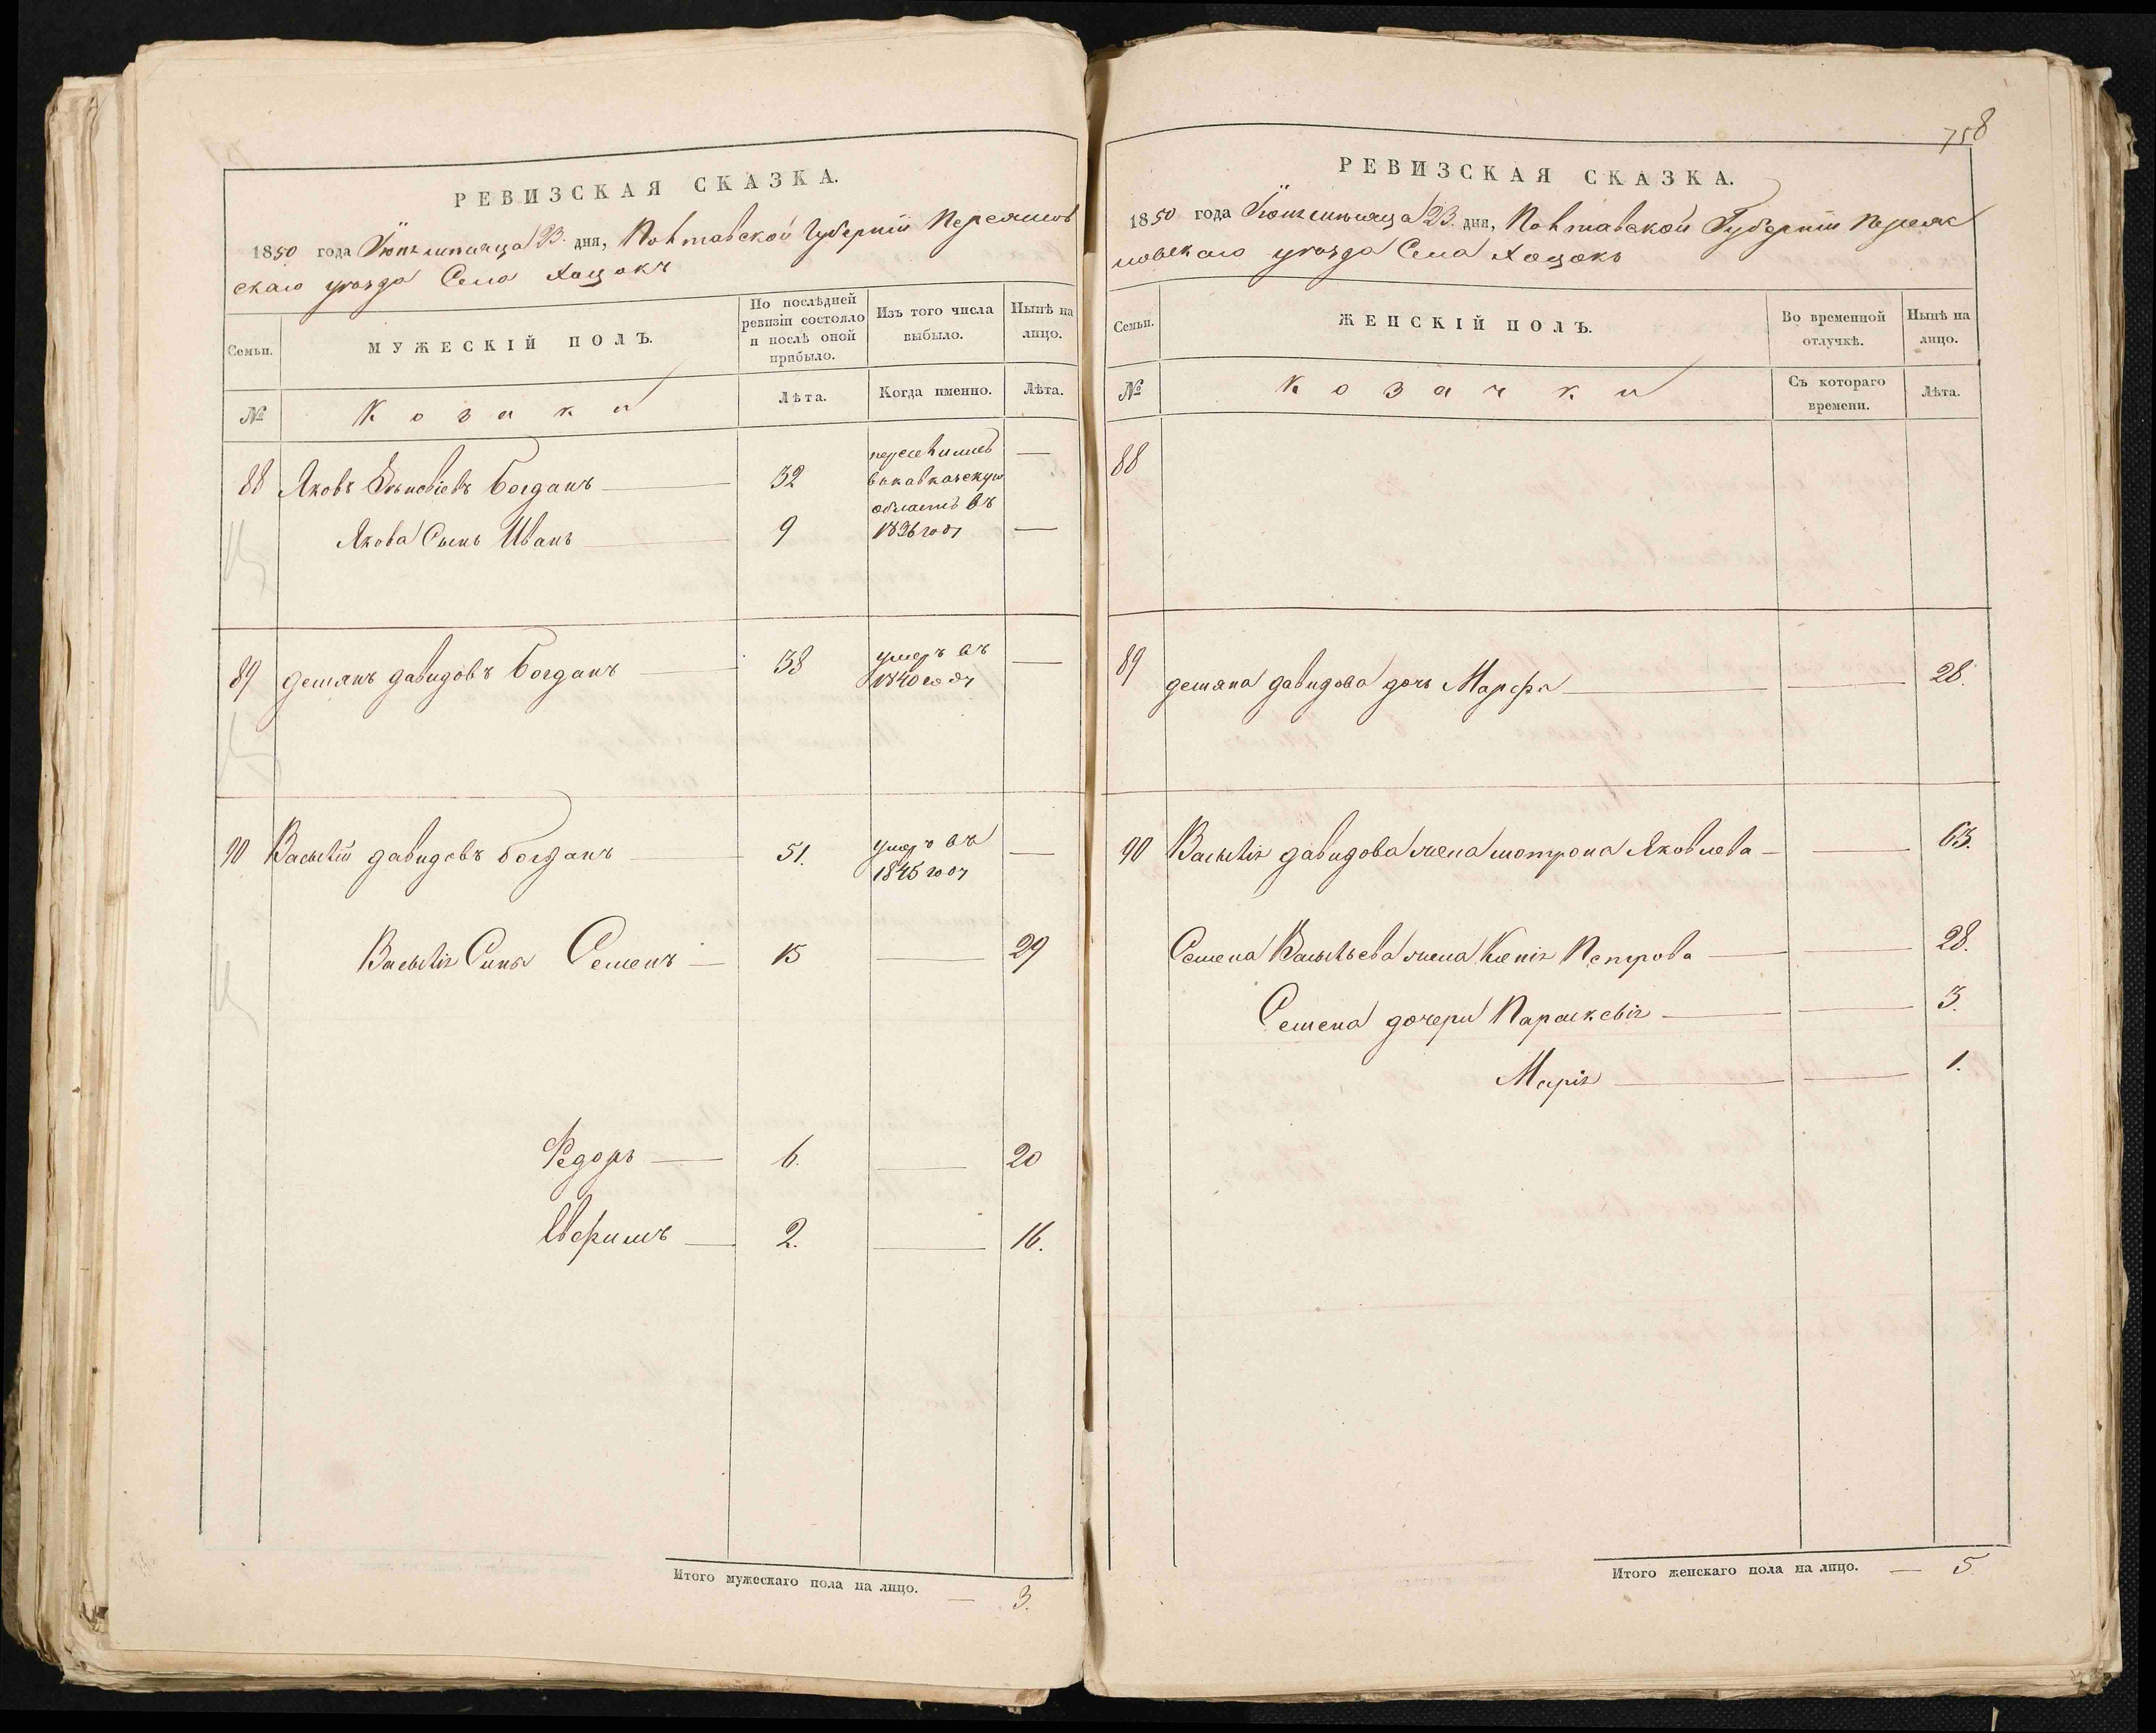 РЕВИЗСКАЯ СКАЗКА.
1850 года Іюня мѣсяца 23. дня, Полтавской Губерніи Переяслов
скаго уѣзда Села Хоцокъ
Семьи.
МУЖЕСКІЙ ПОЛЪ.
По послѣдней ревизіи состояло и послѣ оной прибыло.
Изъ того числа выбыло.
Нынѣ на лицо.
№
Козаки
Лѣта.
Когда именно.
Лѣта.
88 Яковъ Богданъ 32 переселились
в кавказскую
область въ
Якова Сынъ Иванъ 9 1836 году
89 демянъ давидовъ Богданъ 38 умеръ въ
1840 году
90 Василій давидовъ Богданъ 51. умеръ въ
1845 году
Василія Сыны Семенъ 15 29
Федоръ 6. 20
Евфимъ 2. 16.
Итого мужескаго пола на лицо. — 3.
758
РЕВИЗСКАЯ СКАЗКА.
1850 года Іюня мѣсяца 23. дня, Полтавской Губерніи Переяс
ловскаго уѣзда Села Хоцокъ
Семьи.
ЖЕНСКІЙ ПОЛЪ.
Во временной отлучкѣ.
Нынѣ на лицо.
№
Козачки
Съ котораго времени.
Лѣта.
88
89 демяна давидова дочь Марфа 28.
90 Василія давидова жена мотрона Яковлева 63.
Семена Васильева жена Ксенія Петрова 28.
Семена дочери Параскевія 3.
Марія 1.
Итого женскаго пола на лицо. — 5.